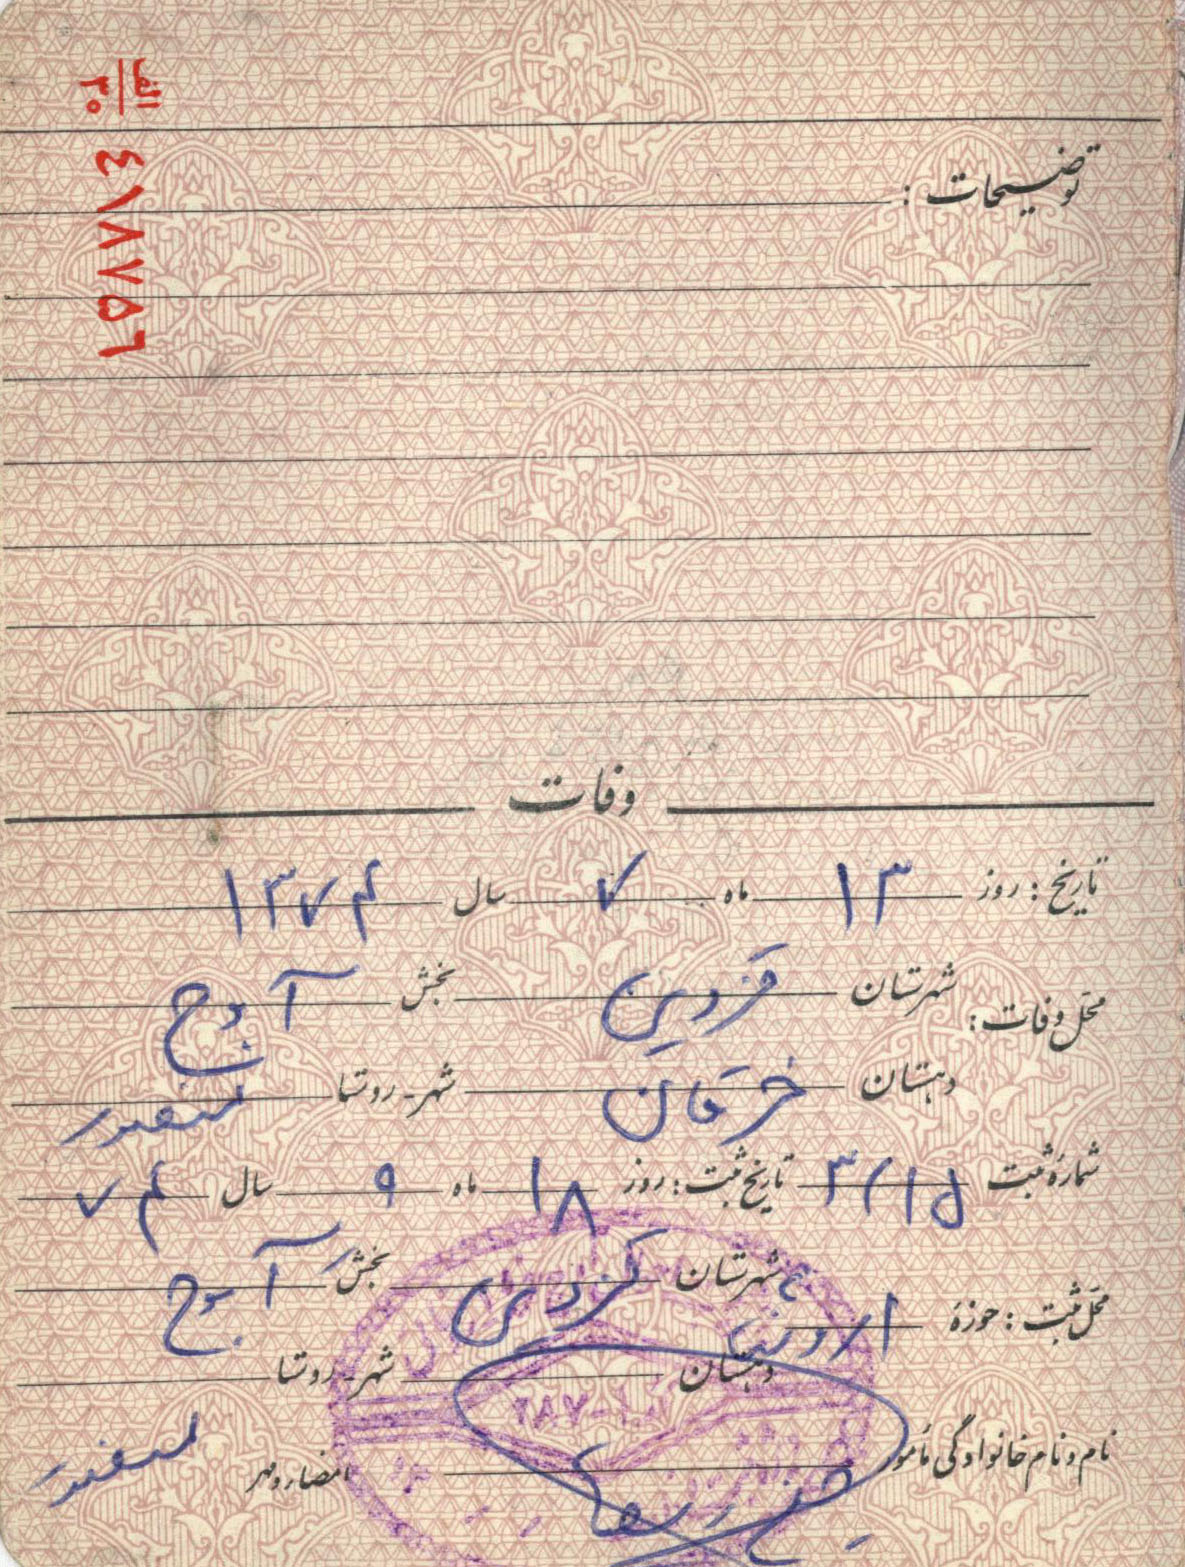 الف
۳۰
۴۸۸۷۵۶
توضیحات :
وفات
تاریخ : روز ۱۳ ماه ۷ سال ۱۳۷۴
محل وفات : شهرستان قزوین بخش آوج
دهستان خرقان شهر ـ روستا
شمارۀ ثبت تاریخ ثبت : روز ۱۸ ماه ۹ سال ۷۴
محل ثبت : حوزۀ شهرستان قزوین بخش آوج
دهستان شهر ـ روستا
نام و نام خانوادگی مأمور امضاء و مهر